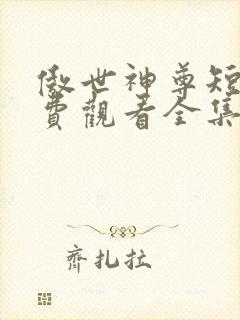 傲世神尊短
費觀看全集
齊扎拉